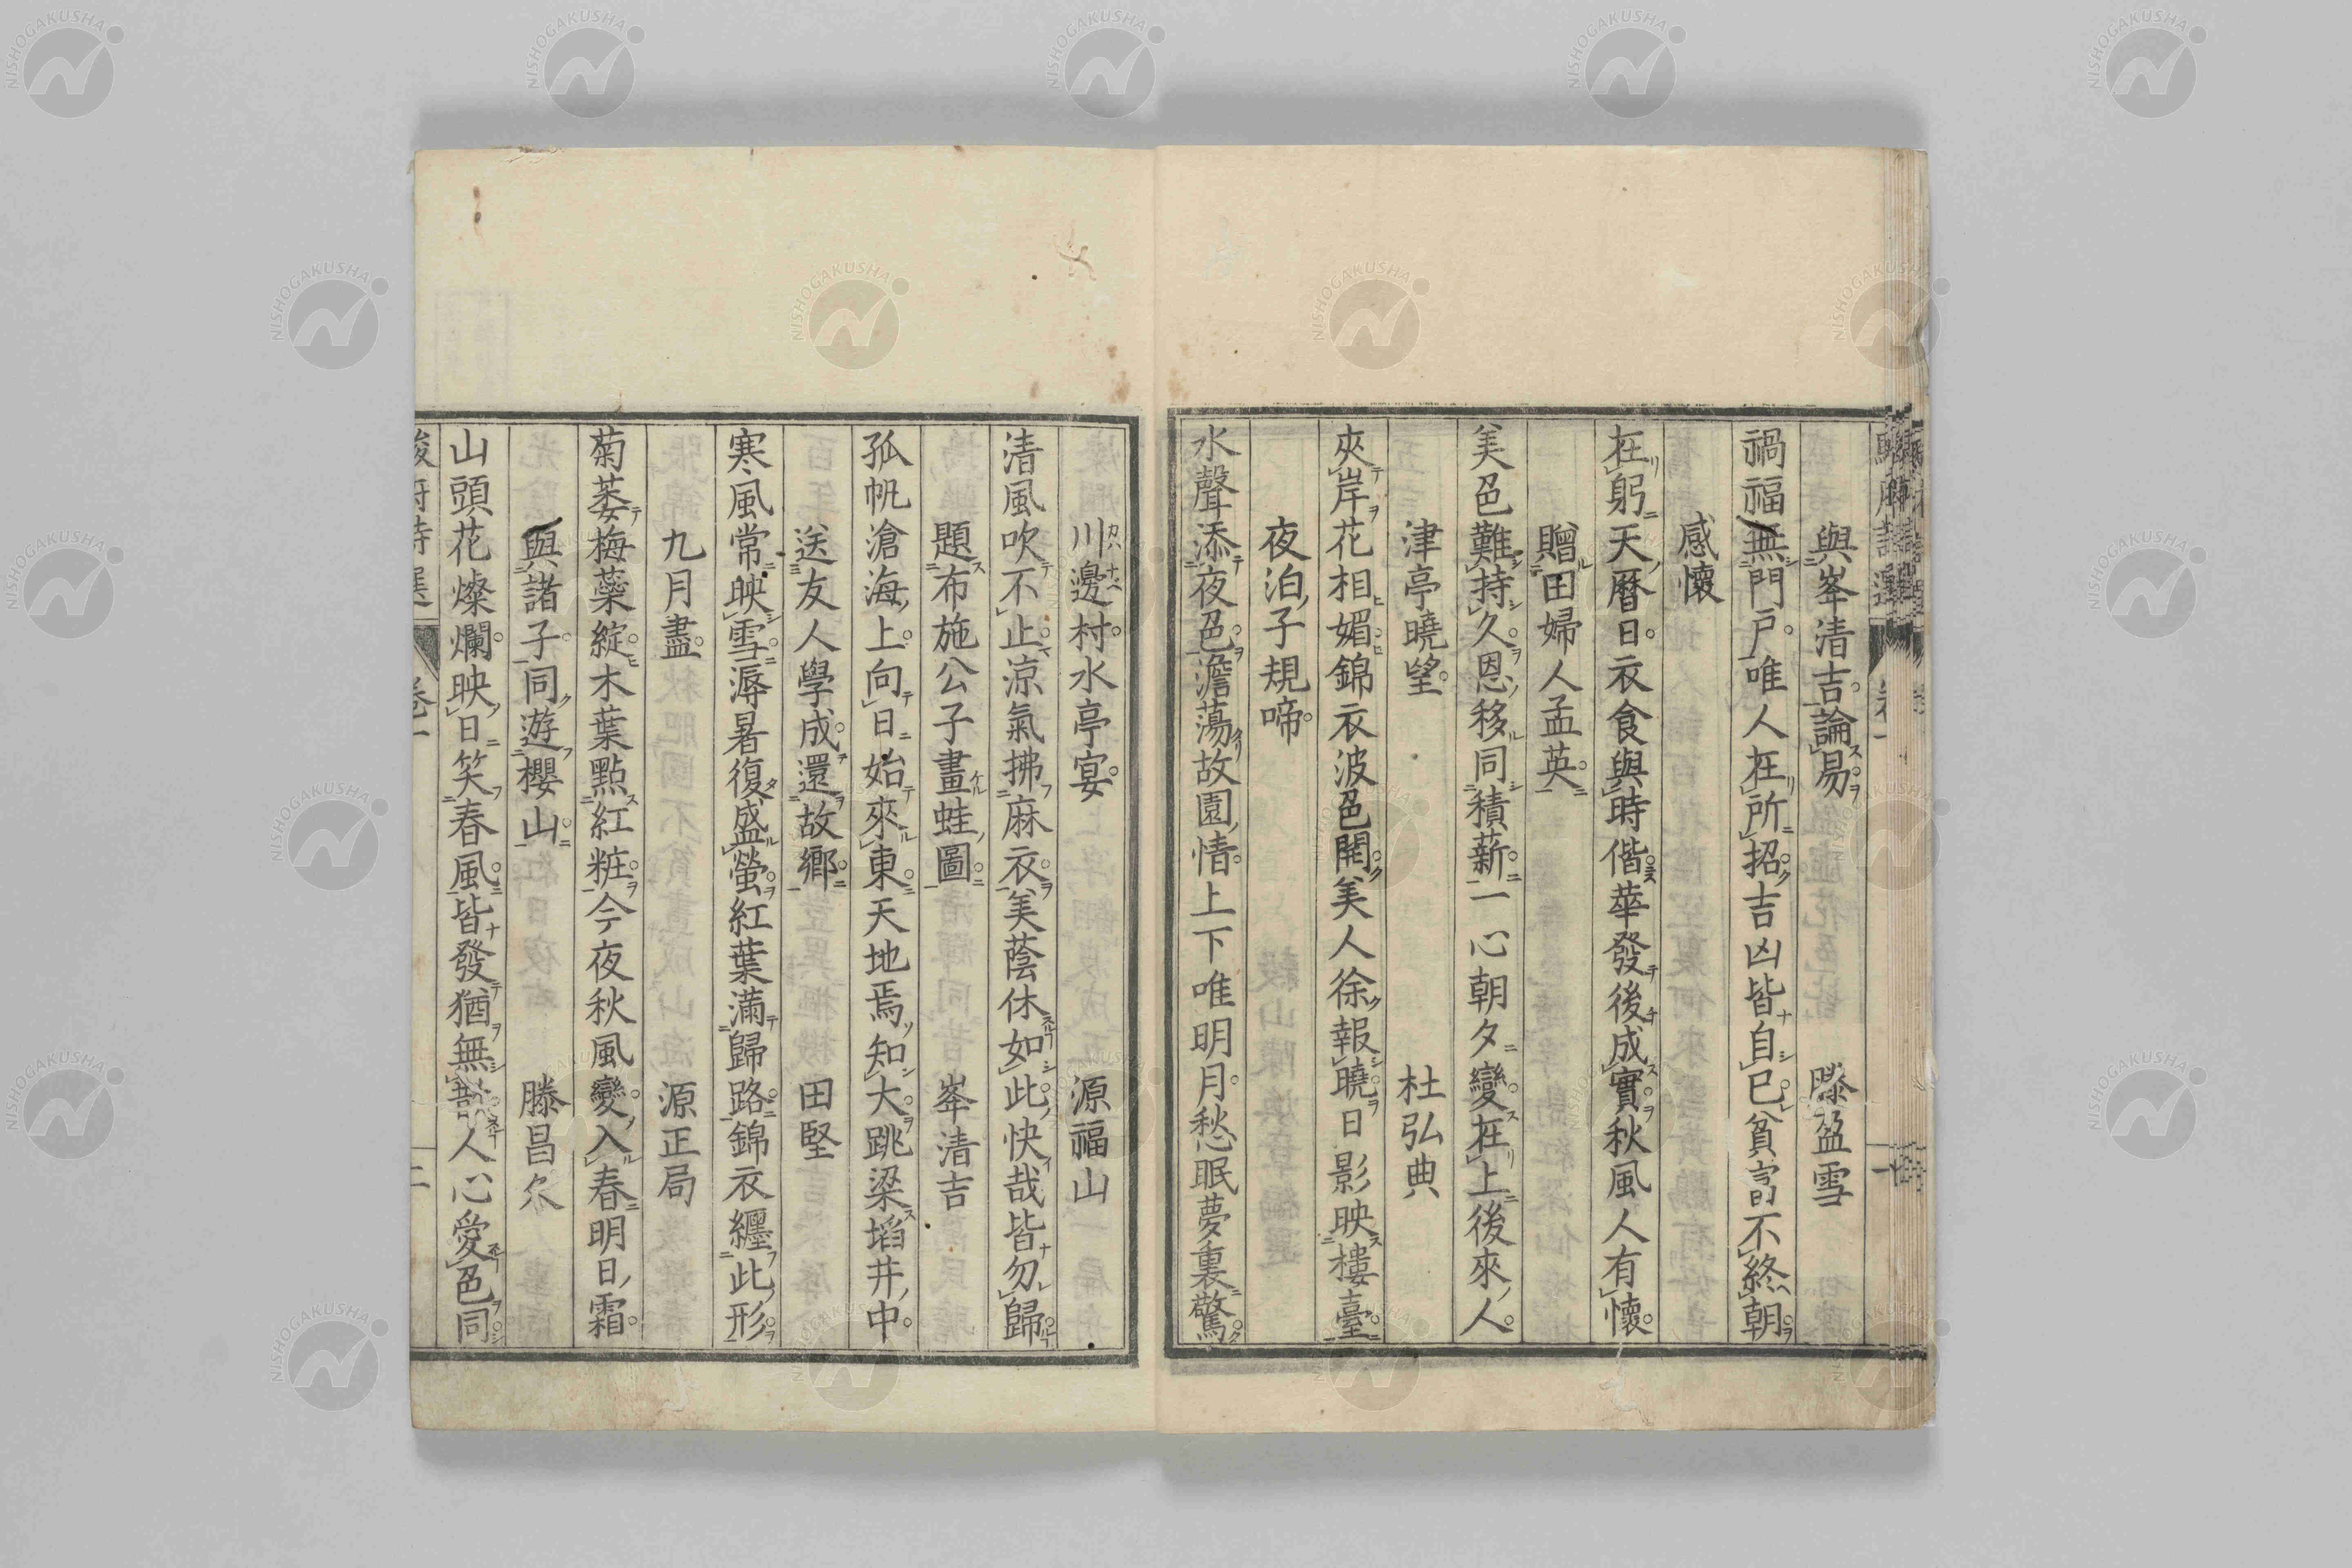 與峯清吉論易 滕盈雪
禍福無門戸唯人在所招吉凶皆自已貧富不終朝
感懷
在躬天曆日衣食與時偕華發後成實秋風人有懷
贈田婦人孟英
美色難持久恩移同積薪一心朝夕變在上後來人
津亭曉望 杜弘典
夾岸花相媚錦衣波色開美人徐報曉日影映樓臺
夜泊子規啼
水聲添夜色澹蕩故園情上下唯明月愁眠夢裏驚
川邊村水亭宴 源福山
清風吹不止凉氣拂麻衣美蔭休如此快哉皆勿歸
題布施公子畫蛙圖 峯清吉
孤帆滄海上向日始來東天地焉知大跳梁埳井中
送友人學成還故鄉 田堅
寒風常映雪溽暑復盛螢紅葉滿歸路錦衣纒此形
九月盡 源正局
菊萎梅蘂綻木葉點紅粧今夜秋風變入春明日霜
與諸子同遊櫻山 滕昌尒
山頭花燦爛映日笑春風皆發猶無語人心愛色同
卷一
二
NISHOGAKUSHA